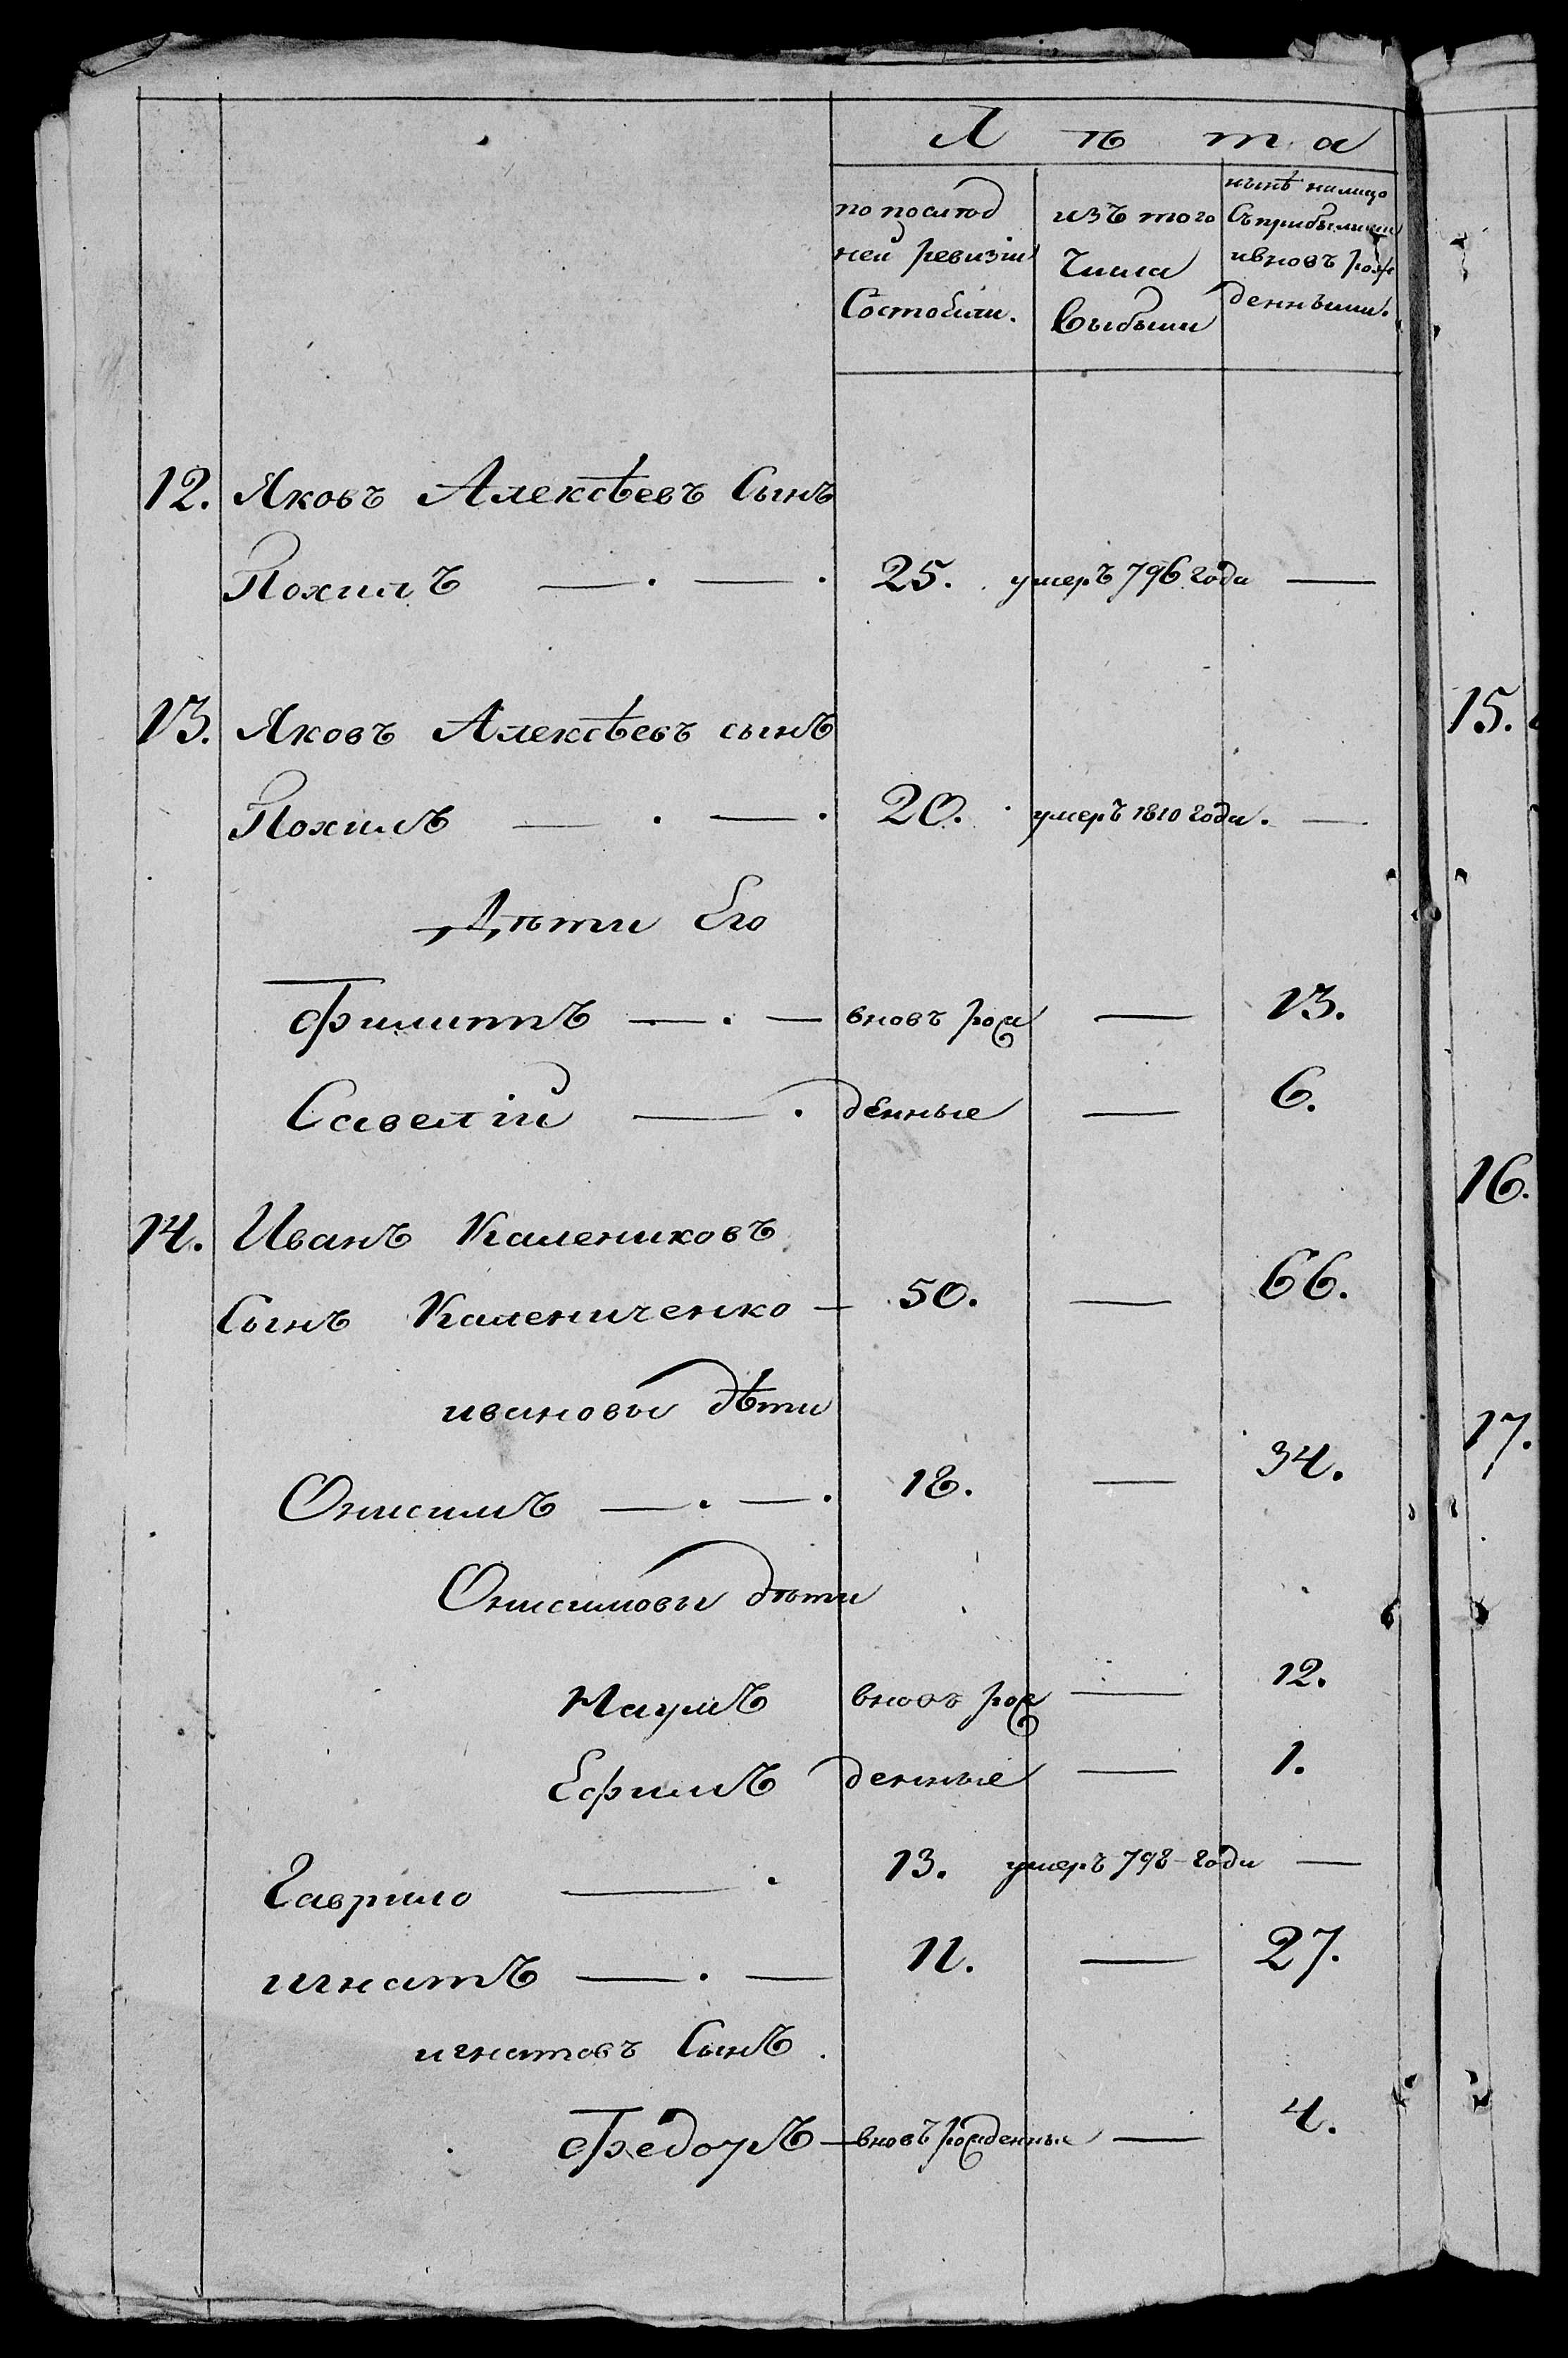 Лѣта
по послѣд
ней ревизіи
Состояли.
изъ того
Числа
выбыли
нынѣ налицо
Съ прибылыми
и вновь рож
денными.
12. Яковъ Алексѣевъ Сынъ
Похилъ — . — . 25. умеръ 796 года —
13. Яковъ Алексѣевъ сынъ
Похилъ — . — . 20. умеръ 1810 года. —
Дѣти Его
Филипъ — . — вновь рож — 13.
Савелій — . денные — 6.
14. Иванъ Калениковъ
Сынъ Калениченко — 50. — 66.
ивановы дѣти
Онисимъ — . — . 18. — 34.
Онисимовы дѣти
Наумъ вновь рож — 12.
Ефимъ денные — 1.
Гаврило — . 13. умеръ 798 года —
игнатъ — . — 11. — 27.
игнатовъ Сынъ
Федоръ — вновь рожденные — 4.
15.
16.
17.